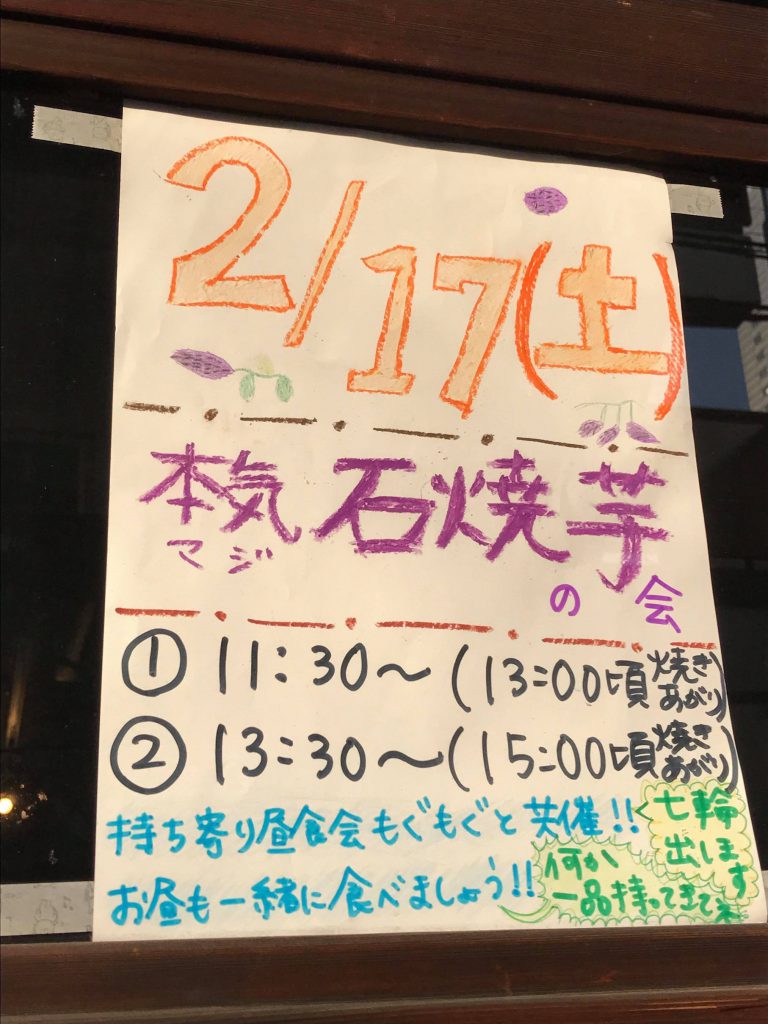 2/17(土)
本気 石焼芋
マジ
の会
① 11:30〜(13:00頃焼きあがり)
② 13:30〜(15:00頃焼きあがり)
持ち寄り昼食会もぐもぐと共催!!
七輪出します
お昼も一緒に食べましょう!!
何か一品持ってきてネ